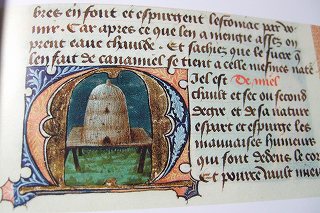 bres en font et espurgent lestomac par vo
mir. Car apres ce que len a mengie assez on
prent eaue chaulde. Et sachies que le sucre q̃
len fait de canamiel se tient a celle mesmes nate
Iel est De miel
chault et sec ou second
degre et de sa nature
espurt et espurge les
mauuaises humeurs
qui sont dedens le cors
Et pource vault mieu